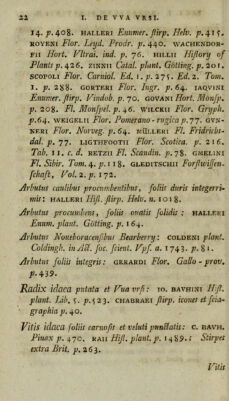 22 I. DE VVA VRSI.
14. p. 408. HALLERI Enumer. stirp. Helv. p. 415.
ROYENI Flor. Leyd. Prodr. p. 440. WACHENDOR-
FII Hort. Vltrai. ind. p. 76. HILLII History of
Plants p. 426. ZINNII Catal. plant. Götting. p. 201.
SCOPOLI Flor. Carniol. Ed. 1. p. 275. Ed. 2. Tom.
I. p. 288. GORTERI Flor. Ingr. p. 64. IAQVINI
Enumer. stirp. Vindob. p. 70. GOVANI Hort. Monsp.
p. 208. Fl. Monspel. p. 46. WILCKII Flor. Gryph.
p. 64. WEIGELII Flor. Pomerano-rugica p. 77. GVN-
NERI Flor. Norveg. p. 64. MÜLLERI Fl. Fridrichs-
dal. p. 77. LIGTHFOOTII Flor. Scotica. p. 216.
Tab. 11. c. d. RETZII Fl. Scandin. p. 78. GMELINI
Fl. Sibir. Tom. 4. p. 118. GLEDITSCHII Forstwissen-
schaft, Vol. 2. p. 172.
Arbutus caulibus procumbentibus, foliis duris integerri-
mis: HALLERI Hist. stirp. Helv. n. 1018.
Arbutus procumbens, foliis ouatis solidis: HALLERI
Enum. plant. Götting. p. 164.
Arbutus Noueboracensibus Bearberry: COLDENI plant.
Coldingh. in Act. soc. scient. Vps. a. 1743. p. 81.
Arbutus foliis integris: GERARDI Flor. Gallo-prov.
p. 439.
Radix idaea putata et Vua vrsi: IO. BAVHINI Hist.
plant. Lib. 5. p. 523. CHABRAEI stirp. icones et scia-
graphia p. 40.
Vitis idaea foliis carnosis et veluti punctatis: C. BAVH.
Pinax p. 470. RAII Hist. plant. p. 1489.: Stirpes
extra Brit. p. 263.
Vitis